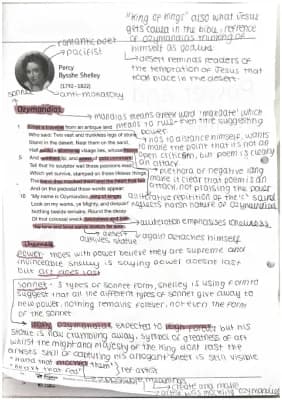 "King of Kings" also what Jesus
gets called in the bible - reference
of ozymandias thinking of
himself as godlike
romantic poet
pacifist
Percy
Bysshe Shelley
(1792 - 1822)
desert reminds readers of
the temptation of Jesus that
took place in the desert.
sonnet
anti-monarchy
Ozymandias
mandias means greek word "mandate" which
means to rule - then this suggesting
power
I met a traveller from an antique land
Who said: Two vast and trunkless legs of stone
Stand in the desert. Near them on the sand,
Half sunk, a shattered visage lies, whose frown
And wrinkled lip, and sneer of cold command
Tell that its sculptor well those passions read
Which yet survive, stamped on these lifeless things
The hand that mocked them and the heart that fed;
And on the pedestal these words appear:
'My name is Ozymandias, king of kings:
Look on my works, ye Mighty, and despair!'
Nothing beside remains. Round the decay
Of that colossal wreck, boundless and bare
The lone and level sands stretch far away.
has to distance himself, wants
to make the point that its not an
open criticism, but poem is clearly
an attack
plethora of negative lang
make it clear that poem is an
attack, not praising the power
alliteration emphasises
desert
outlives statue
again attaches himself
Themes
power: those with power believe they are supreme and
invincible shelley is saying power doesnt last
but art does last
sonnet - 3 types of sonnet form, shelley is using form to
suggest that all the different types of sonnet give away to
new power, nothing remains forever, not even the form
of the sonnet
Ozymandias, expected to reign forever but his
statue is now crumbling away. Symbol of greatness of art
whilst the might and majesty of the king dont last the
artists skill of capturing his arrogant sneer is still visible
"hand that mocked them"
"heart that fed"
create and make